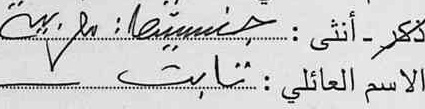 ذكر - أنثى : جنسيتها : مغربية
الاسم العائلي : ثابت